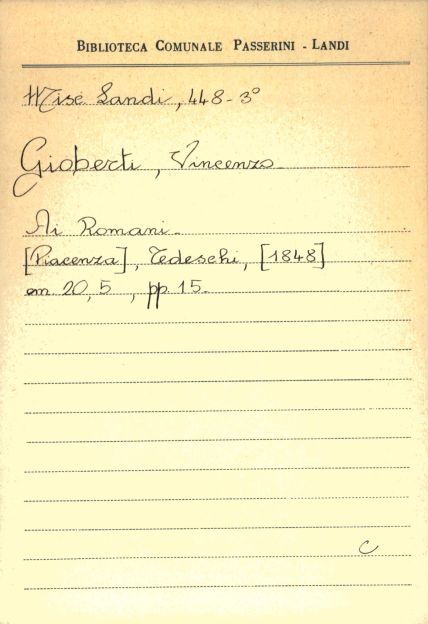 BIBLIOTECA COMUNALE PASSERINI - LANDI
Misc Landi, 448-3°
Gioberti, Vincenzo
Ai Romani.
[Piacenza], Tedeschi, [1848]
cm. 20,5 , pp. 15.
C